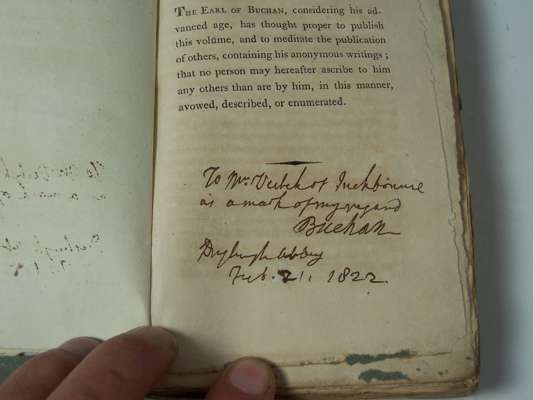 THE EARL OF BUCHAN, considering his ad-
vanced age, has thought proper to publish
this volume, and to meditate the publication
of others, containing his anonymous writings;
that no person may hereafter ascribe to him
any others than are by him, in this manner,
avowed, described, or enumerated.
To Mr. Veitch of Inchbonnie
as a mark of my regard
Buchan
Dryburgh Abbey
Feb. 21, 1822.